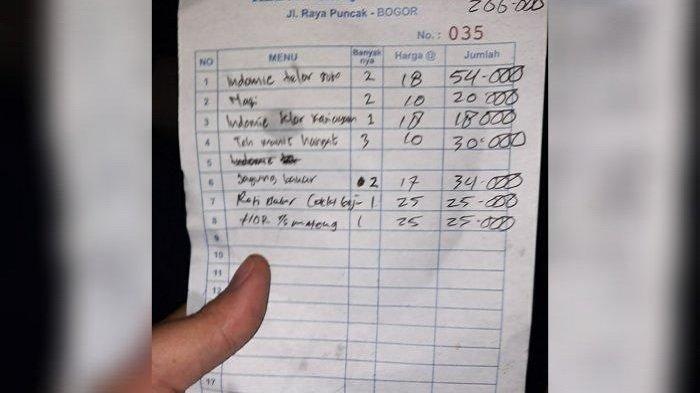 266-000
Jl. Raya Puncak - BOGOR
No. : 035
NO MENU Banyak nya Harga @ Jumlah
1 Indomie telor 2 18 54-000
2 Nasi 2 10 20-000
3 Indomie telor 1 18 18000
4 Teh manis hangat 3 10 30-000
5 Indomie
6 Jagung bakar 2 17 34-000
7 Roti Bakar Coklat keju 1 25 25-000
8 1/2 matang 1 25 25-000
9
10
11
12
17